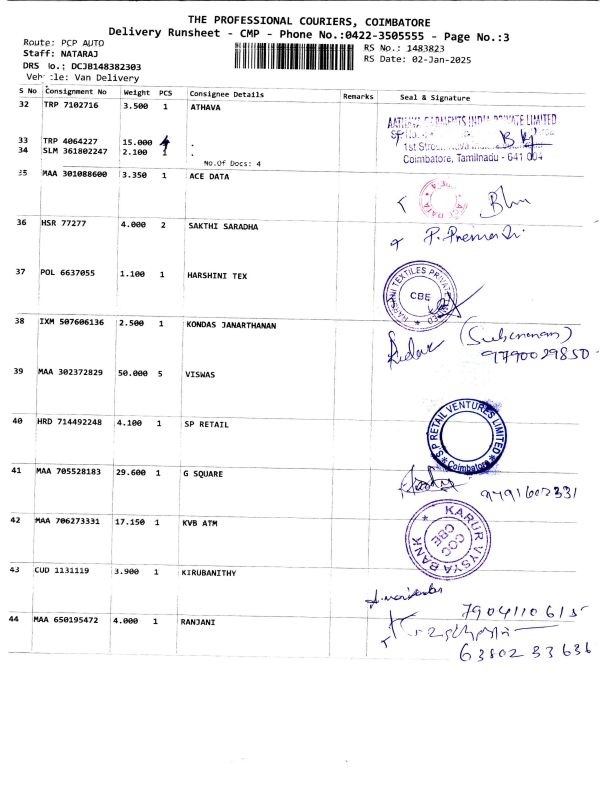 THE PROFESSIONAL COURIERS, COIMBATORE
Delivery Runsheet - CMP - Phone No.:0422-3505555 - Page No.:3
Route: PCP AUTO
Staff: NATARAJ
DRS No.: DCJB148382303
Vehicle: Van Delivery
RS No.: 1483823
RS Date: 02-Jan-2025
S No Consignment No Weight PCS Consignee Details Remarks Seal & Signature
32 TRP 7102716 3.500 1 ATHAVA
PRIVATE LIMITED
33 TRP 4064227 15.000 .
34 SLM 361802247 2.100 1 .
1st Street
Coimbatore, Tamilnadu - 641 004
No.Of Docs: 4
35 MAA 301088600 3.350 1 ACE DATA
ACE DATA
36 HSR 77277 4.000 2 SAKTHI SARADHA
37 POL 6637055 1.100 1 HARSHINI TEX
HARSHINI TEXTILES PRIVATE LIMITED
CBE
38 IXM 507606136 2.500 1 KONDAS JANARTHANAN
9790029850
39 MAA 302372829 50.000 5 VISWAS
40 HRD 714492248 4.100 1 SP RETAIL
S.P RETAIL VENTURES LIMITED
Coimbatore
41 MAA 705528183 29.600 1 G SQUARE
9791602331
42 MAA 706273331 17.150 1 KVB ATM
KARUR VYSYA BANK
CGC
CBE
43 CUD 1131119 3.900 1 KIRUBANITHY
7904110615
44 MAA 650195472 4.000 1 RANJANI